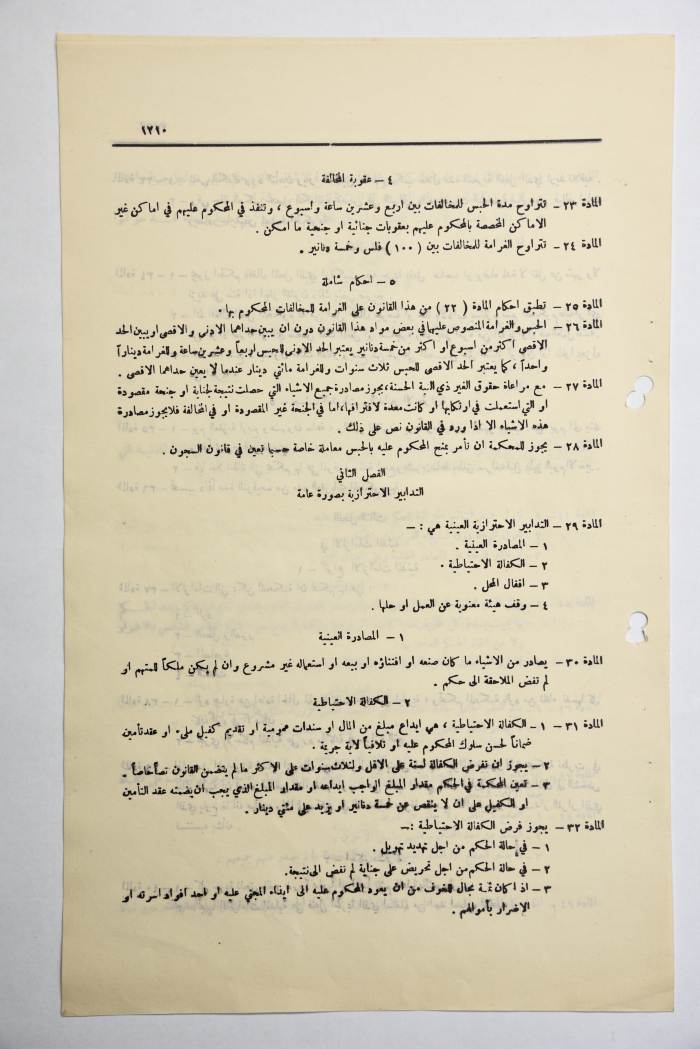 ١٢١٠
٤ – عقوبة المخالفة
المادة ٢٣ – تتراوح مدة الحبس للمخالفات بين اربع وعشرين ساعة واسبوع ، وتنفذ في المحكوم عليهم في اماكن غير
الاماكن المخصصة بالمحكوم عليهم بعقوبات جنائية او جنحية ما امكن .
المادة ٢٤ – تتراوح الغرامة للمخالفات بين ( ١٠٠ ) فلس وخمسة دنانير .
٥ – احكام شاملة
المادة ٢٥ – تطبق احكام المادة ( ٢٢ ) من هذا القانون على الغرامة للمخالفات المحكوم بها .
المادة ٢٦ – الحبس والغرامة المنصوص عليها في بعض مواد هذا القانون دون ان يبين حداهما الادنى والاقصى او يبين الحد
الاقصى أكثر من اسبوع او اكثر من خمسة دنانير يعتبر الحد الادنى للحبس اربعاً وعشرين ساعة وللغرامة ديناراً
واحداً ، كما يعتبر الحد الاقصى للحبس ثلاث سنوات وللغرامة مائتي دينار عندما لا يعين حداهما الاقصى .
المادة ٢٧ – مع مراعاة حقوق الغير ذي النية الحسنة، يجوز مصادرة جميع الاشياء التي حصلت نتيجة لجناية او جنحة مقصودة
او التي استعملت في ارتكابها او كانت معدة لاقترافها، اما في الجنحة غير المقصودة او في المخالفة فلا يجوز مصادرة
هذه الاشياء الا اذا ورد في القانون نص على ذلك .
المادة ٢٨ – يجوز للمحكمة ان تأمر بمنح المحكوم عليه بالحبس معاملة خاصة حسبما تعين في قانون السجون .
الفصل الثاني
التدابير الاحترازية بصورة عامة
المادة ٢٩ – التدابير الاحترازية العينية هي : –
١ – المصادرة العينية .
٢ – الكفالة الاحتياطية .
٣ – اقفال المحل .
٤ – وقف هيئة معنوية عن العمل او حلها .
١ – المصادرة العينية
المادة ٣٠ – يصادر من الاشياء ما كان صنعه او اقتناؤه او بيعه او استعماله غير مشروع وان لم يكن ملكاً للمتهم او
لم تفض الملاحقة الى حكم .
٢ – الكفالة الاحتياطية
المادة ٣١ – ١ – الكفالة الاحتياطية ، هي ايداع مبلغ من المال او سندات عمومية او تقديم كفيل مليء او عقد تأمين
ضماناً لحسن سلوك المحكوم عليه او تلافياً لاية جريمة .
٢ – يجوز ان تفرض الكفالة لسنة على الاقل ولثلاث سنوات على الاكثر ما لم يتضمن القانون نصاً خاصاً .
٣ – تعين المحكمة في الحكم مقدار المبلغ الواجب ايداعه او مقدار المبلغ الذي يجب ان يضمنه عقد التأمين
او الكفيل على ان لا ينقص عن خمسة دنانير او يزيد على مئتي دينار .
المادة ٣٢ – يجوز فرض الكفالة الاحتياطية :–
١ – في حالة الحكم من اجل تهديد تهويل .
٢ – في حالة الحكم من اجل تحريض على جناية لم تفض الى نتيجة .
٣ – اذا كان ثمة مجال للخوف من ان يعود المحكوم عليه الى ايذاء المجني عليه او احد أفراد اسرته او
الإضرار بأموالهم .